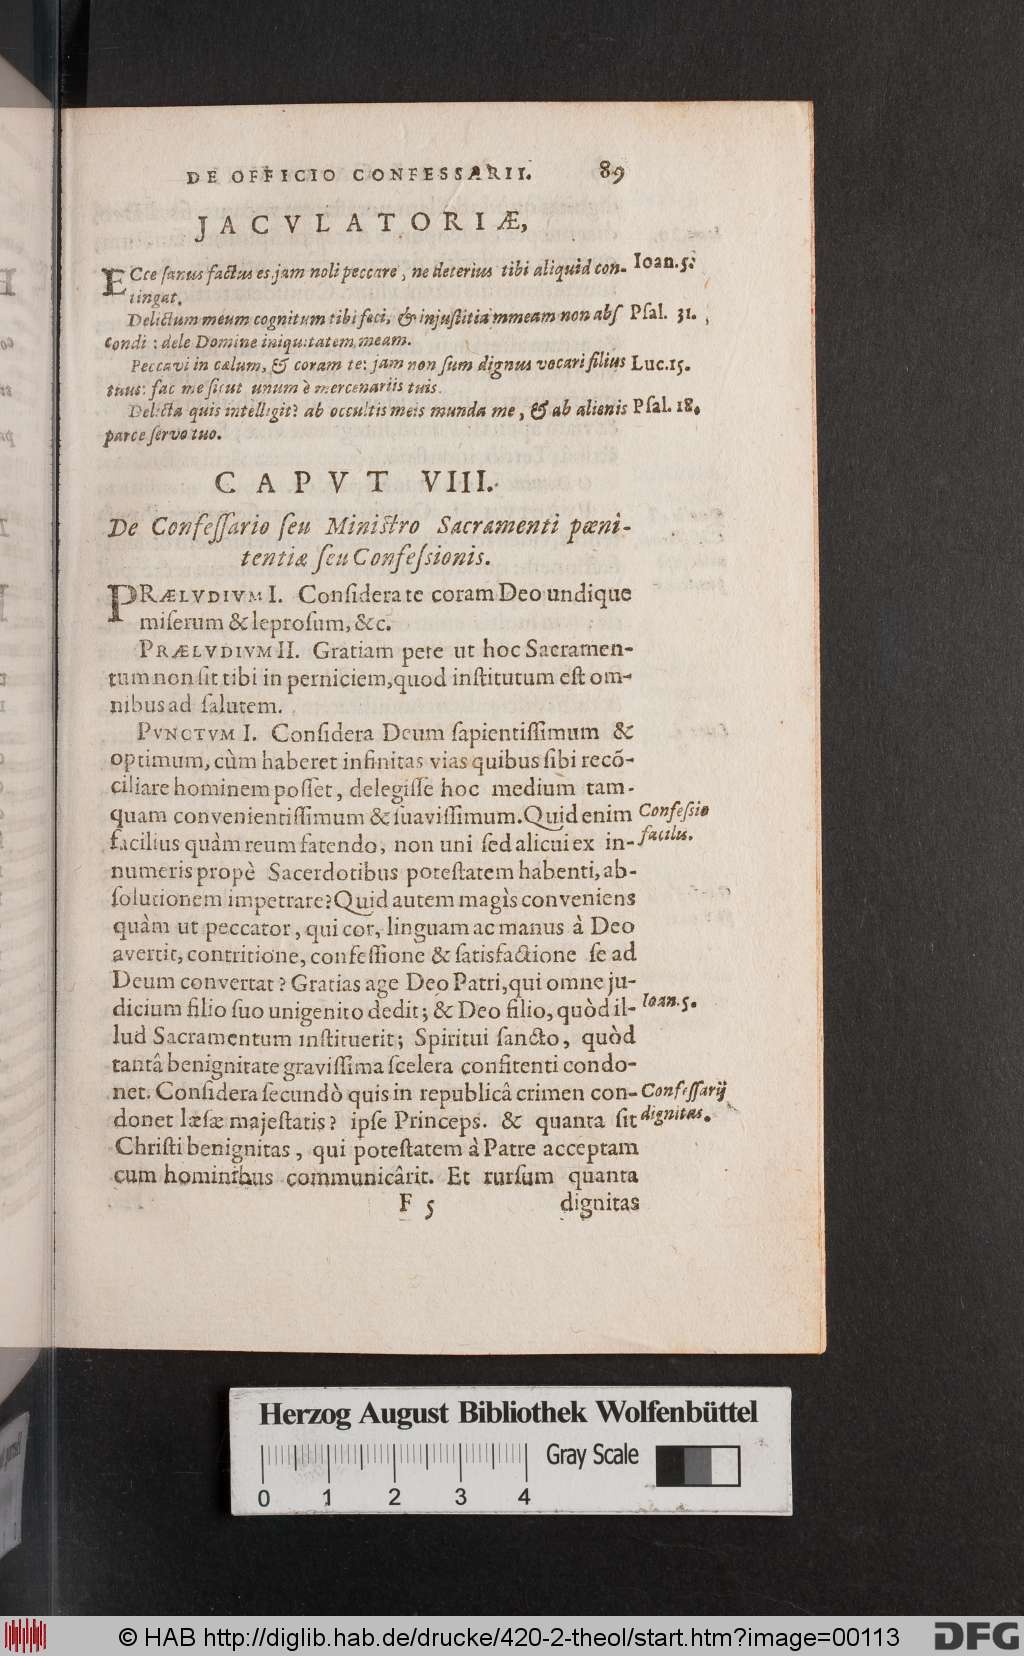 DE OFFICIO CONFESSARII. 89
JACVLATORIÆ,
ECce ſanus factus es jam noli peccare, ne deterius tibi aliquid con- Ioan. 5.
tingat.
Delictum meum cognitum tibi feci, & injuſtitia mmeam non abſ Pſal. 31.
condi : dele Domine iniquitatem meam.
Peccavi in cælum, & coram te: jam non ſum dignus vocari filius Luc. 15.
tuus: fac me ſicut unum è mercenariis tuis.
Delicta quis intelligit? ab occultis meis munda me, & ab alienis Pſal. 18.
parce ſervo tuo.
CAPVT VIII.
De Confeſſario ſeu Miniſtro Sacramenti pœni-
tentiæ ſeu Confeſsionis.
PRÆLVDIVM I. Conſidera te coram Deo undique
miſerum & leproſum, &c.
PRÆLVDIVM II. Gratiam pete ut hoc Sacramen-
tum non ſit tibi in perniciem, quod inſtitutum eſt om-
nibus ad ſalutem.
PVNCTVM I. Conſidera Deum ſapientiſſimum &
optimum, cùm haberet infinitas vias quibus ſibi recõ-
ciliare hominem poſſet, delegiſſe hoc medium tam-
quam convenientiſſimum & ſuaviſſimum. Quid enim Confeſsio
facilius quàm reum fatendo, non uni ſed alicui ex in- facilis.
numeris propè Sacerdotibus poteſtatem habenti, ab-
ſolutionem impetrare? Quid autem magìs conveniens
quàm ut peccator, qui cor, linguam ac manus à Deo
avertit, contritione, confeſſione & ſatisfactione ſe ad
Deum convertat? Gratias age Deo Patri, qui omne ju-
dicium filio ſuo unigenito dedit; & Deo filio, quòd il- Ioan. 5.
lud Sacramentum inſtituerit; Spiritui ſancto, quòd
tantâ benignitate graviſſima ſcelera confitenti condo-
net. Conſidera ſecundò quis in republicâ crimen con- Confeſſarij
donet læſæ majeſtatis? ipſe Princeps. & quanta ſit dignitas.
Chriſti benignitas, qui poteſtatem à Patre acceptam
cum hominibus communicârit. Et rurſum quanta
F 5 dignitas
Herzog August Bibliothek Wolfenbüttel
Gray Scale
0 1 2 3 4
© HAB http://diglib.hab.de/drucke/420-2-theol/start.htm?image=00113
DFG